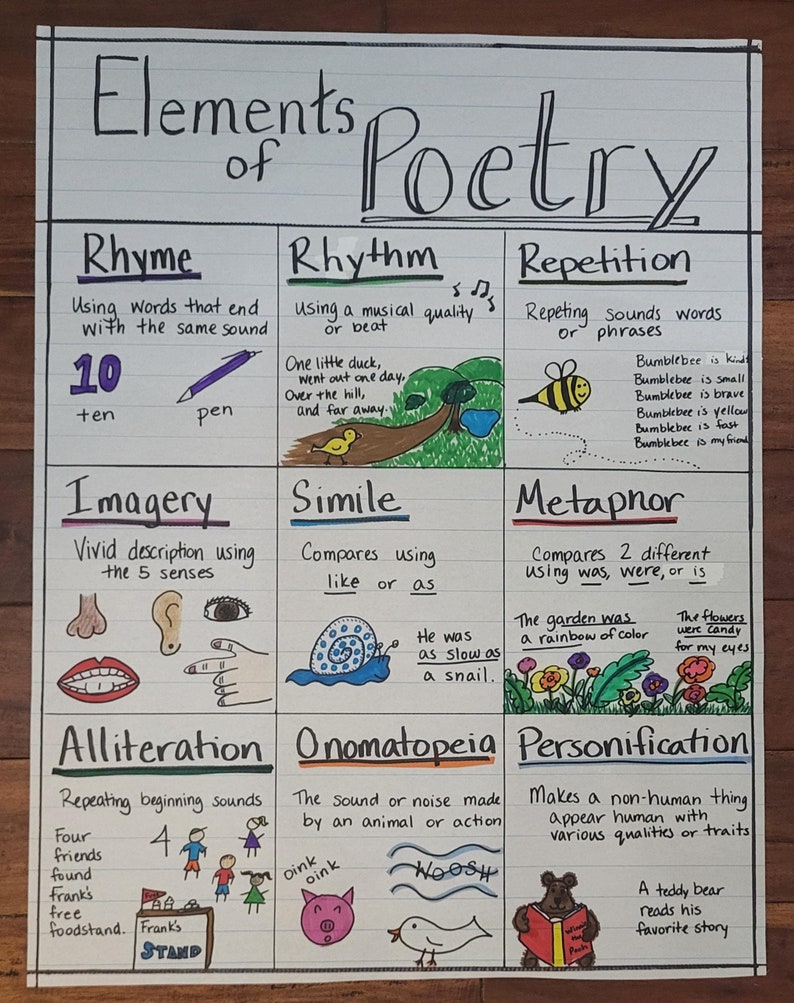 Elements
of
Poetry
Rhyme
Using words that end
with the same sound
10
ten
pen
Rhythm
Using a musical quality
or beat
One little duck,
went out one day,
Over the hill,
and far away.
Repetition
Repeting sounds words
or phrases
Bumblebee is kind
Bumblebee is small
Bumblebee is brave
Bumblebee is yellow
Bumblebee is fast
Bumblebee is my friend
Imagery
Vivid description using
the 5 senses
Simile
Compares using
like or as
He was
as slow as
a snail.
Metaphor
Compares 2 different
using was, were, or is
The garden was
a rainbow of color
The flowers
were candy
for my eyes
Alliteration
Repeating beginning sounds
Four
friends
found
Frank's
free
foodstand.
4
Free
Frank's
STAND
Onomatopeia
The sound or noise made
by an animal or action
oink
oink
WOOSH
Personification
Makes a non-human thing
appear human with
various qualities or traits
Winnie
the
Pooh
A teddy bear
reads his
favorite story